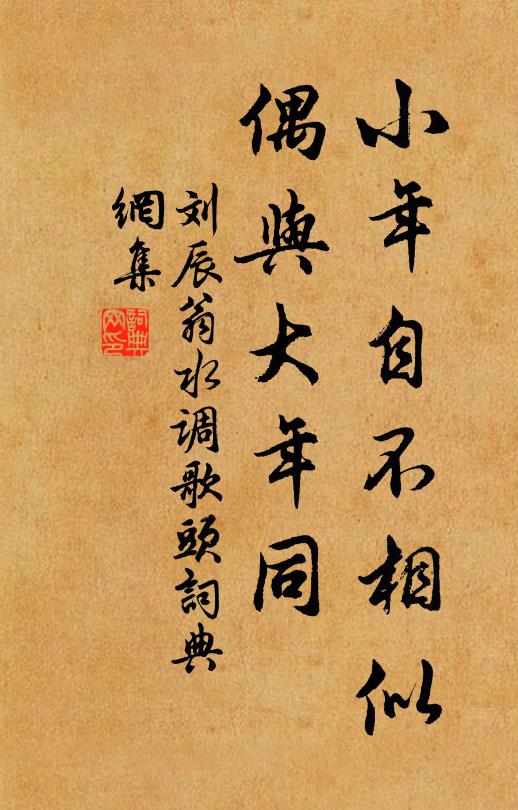 小年自不相似
偶與大年同
刘辰翁水调歌頭詞典
網集
詞典
网印